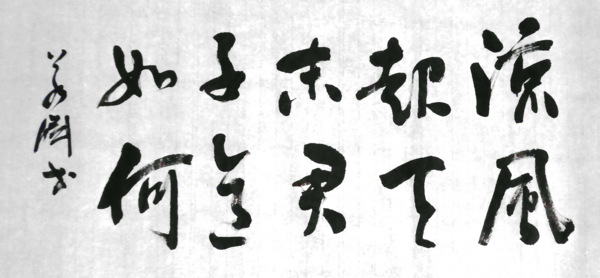 涼風
起天
末君
子意
如何
书